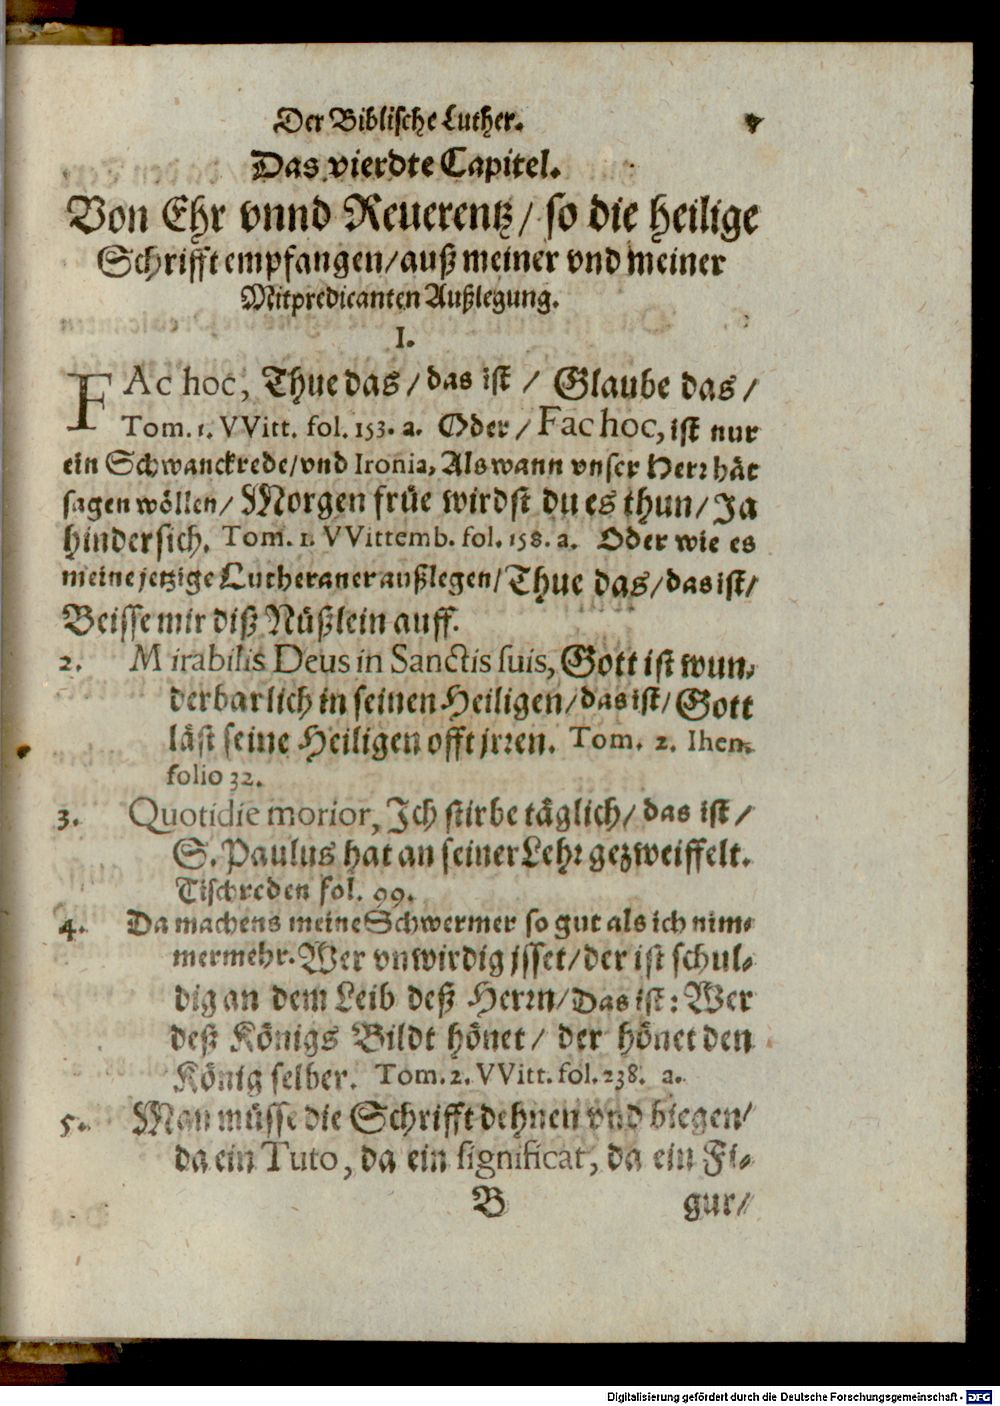 Der Biblische Luther.
Das vierdte Capitel.
Von Ehr vnnd Reuerentz/ so die heilige
Schrifft empfangen/ auß meiner vnd meiner
Mitpredicanten Außlegung.
I.
FAc hoc, Thue das/ das ist/ Glaube das/
Tom. 1. VVitt. fol. 153. a. Oder/ Fac hoc, ist nur
ein Schwanckrede/ vnd Ironia, Als wann vnser Herr hät
sagen wöllen/ Morgen früe wirdst du es thun/ Ja
hindersich. Tom. 1. VVittemb. fol. 158. a. Oder wie es
meine jetzige Lutheraner außlegen/ Thue das/ das ist/
Beisse mir diß Nüßlein auff.
2. Mirabilis Deus in Sanctis suis, Gott ist wun-
derbarlich in seinen Heiligen/ das ist/ Gott
läst seine Heiligen offt jrren. Tom. 2. Ihen.
folio 32.
3. Quotidie morior, Ich stirbe täglich/ das ist/
S. Paulus hat an seiner Lehr gezweiffelt.
Tischreden fol. 99.
4. Da machens meine Schwermer so gut als ich nim-
mermehr. Wer vnwirdig jsset/ der ist schul-
dig an dem Leib deß Herrn/ Das ist: Wer
deß Königs Bildt hönet/ der hönet den
König selber. Tom. 2. VVitt. fol. 238. a.
5. Man müsse die Schrifft dehnen vnd biegen/
da ein Tuto, da ein significat, da ein Fi-
B gur/
Digitalisierung gefördert durch die Deutsche Forschungsgemeinschaft - DFG